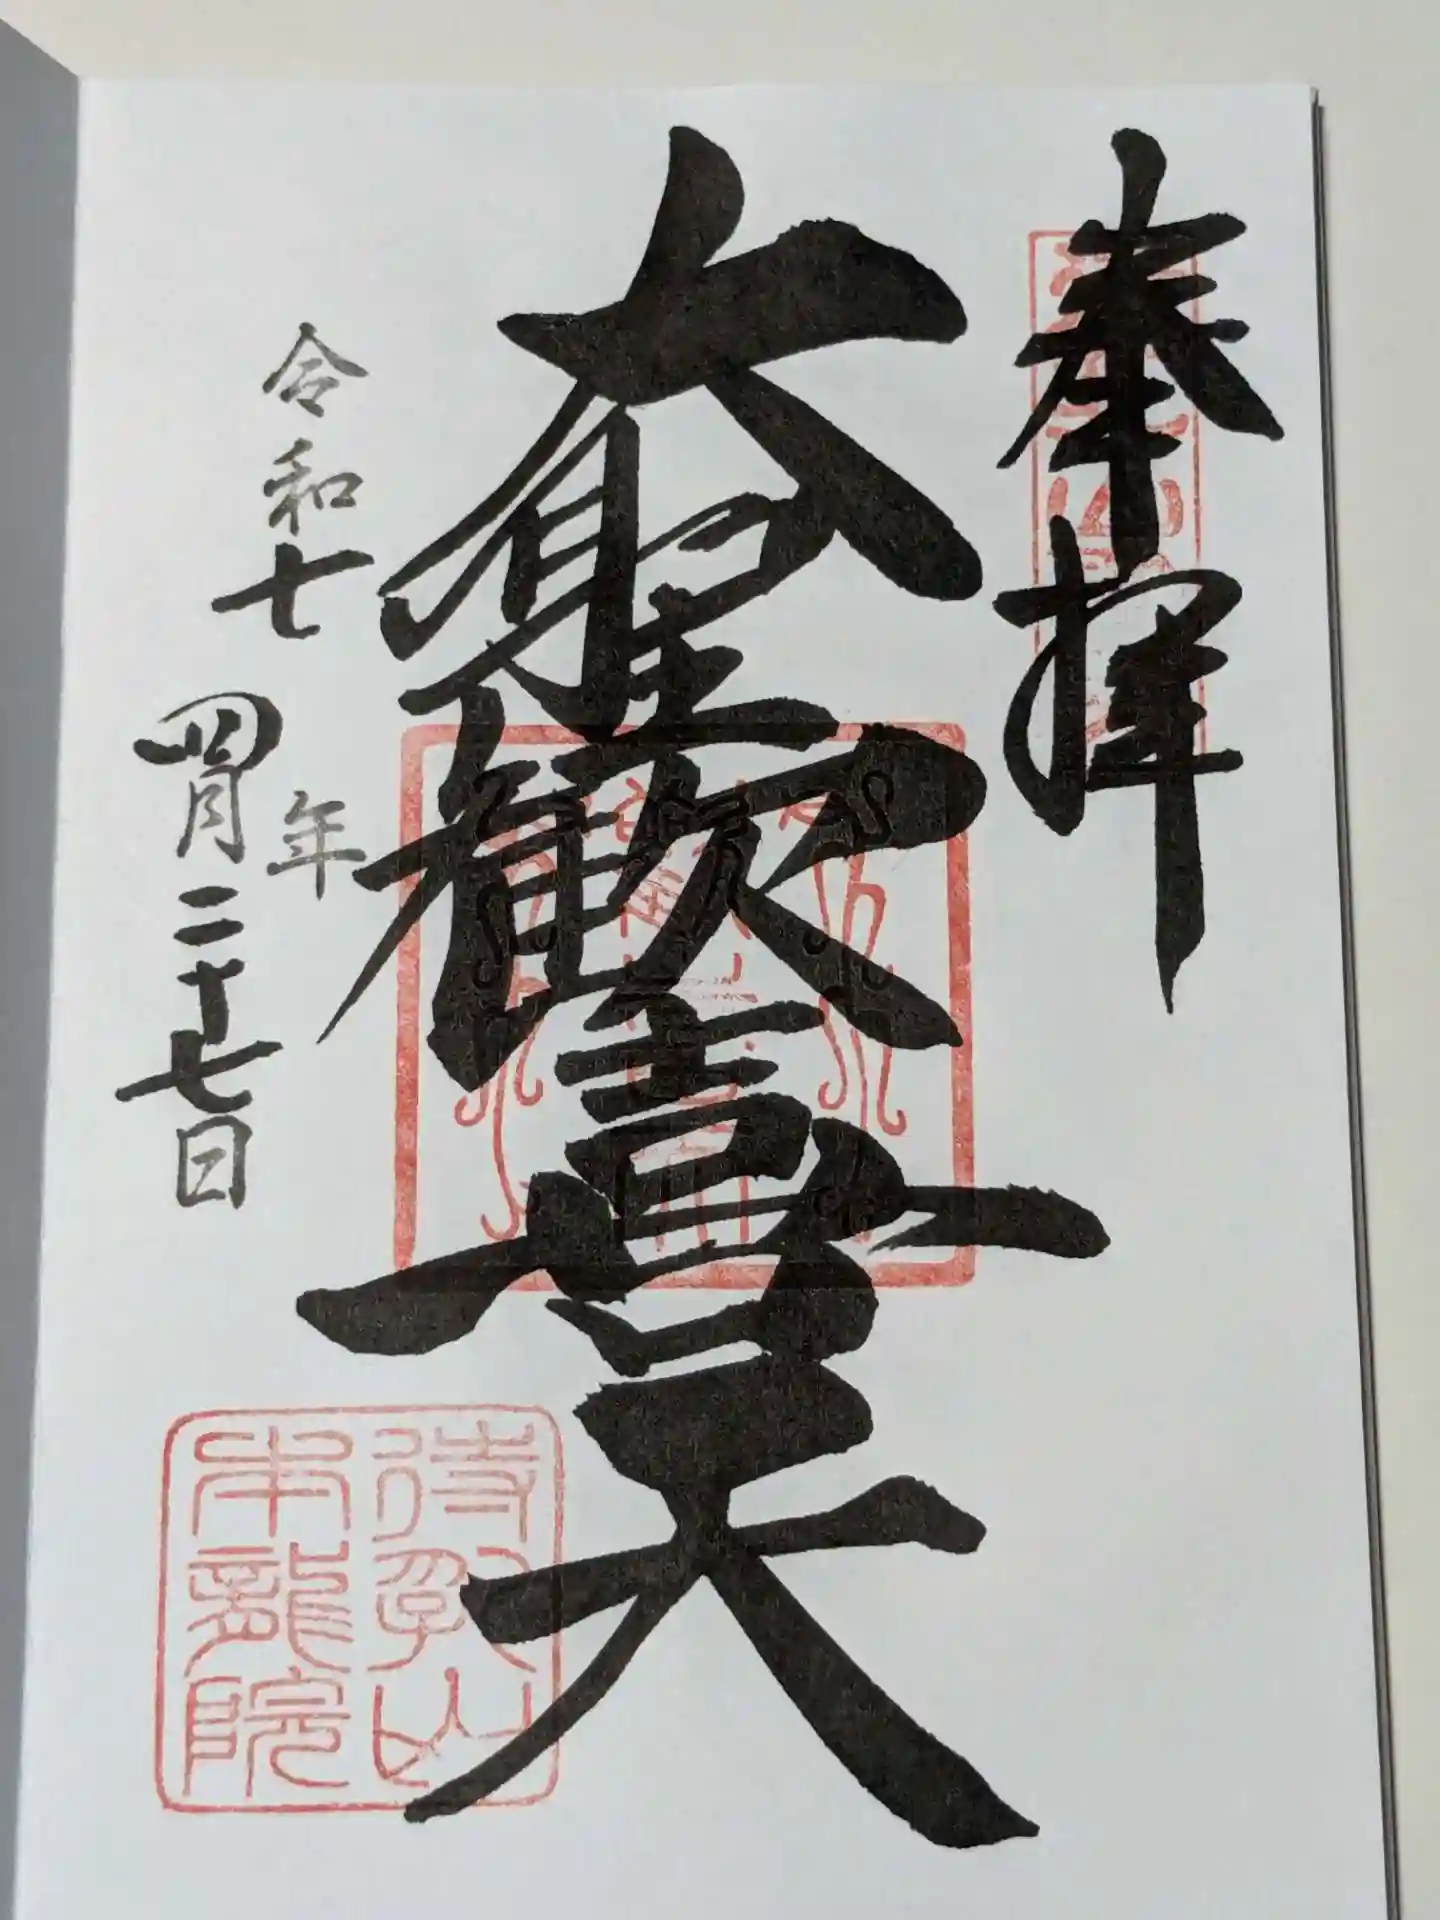 奉拝
大聖歓喜天
令和七年
四月二十七日
待乳山
本龍院